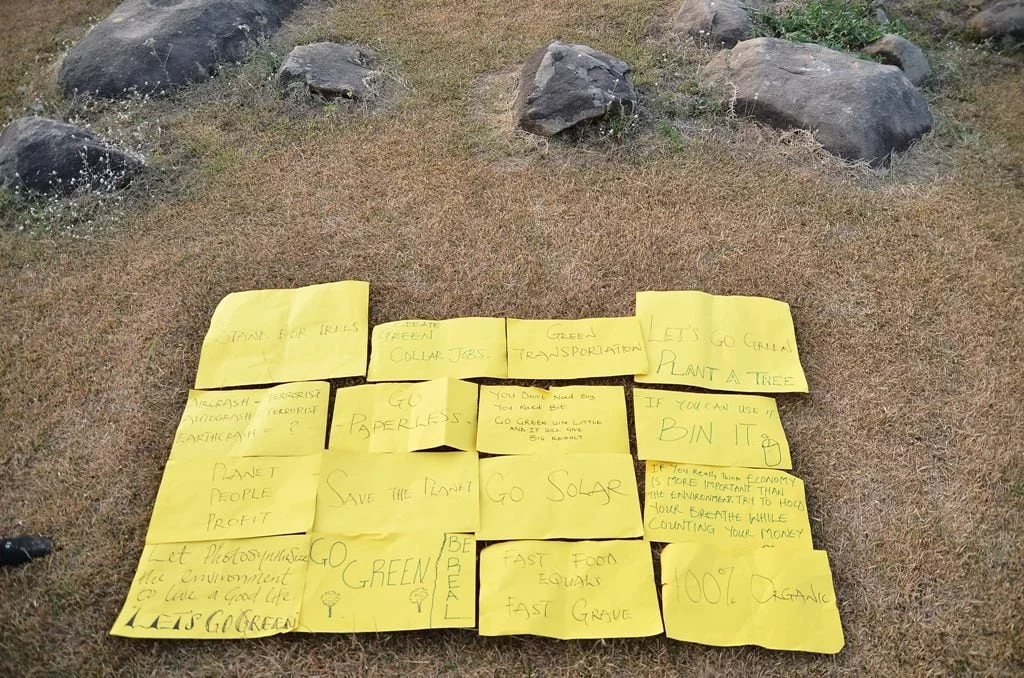 STAND FOR TREES
CREATE
GREEN
COLLAR JOBS.
GREEN
TRANSPORTATION
LET'S GO GREEN
PLANT A TREE
AIRCRASH - TERRORIST
AUTOCRASH - TERRORISTE
EARTHCRASH = ?
GO
-PAPERLESS-
YOU DON'T NEED BIG
YOU NEED BIT
GO GREEN WITH LITTLE
AND IT WILL GIVE
BIG RESULT
IF YOU CAN USE IT
BIN IT
PLANET
PEOPLE
PROFIT
SAVE THE PLANET
GO SOLAR
IF YOU Really Think ECONOMY
IS MORE IMPORTANT THAN
THE ENVIRONMENT TRY TO HOLD
YOUR BREATHE WHILE
COUNTING YOUR MONEY
Let PHOTOSYNTHESIZE
the environment
to live a Good life
"LET'S GO GREEN
GO
GREEN
BE
REAL...
FAST FOOD
EQUALS
FAST GRAVE
100% ORGANIC